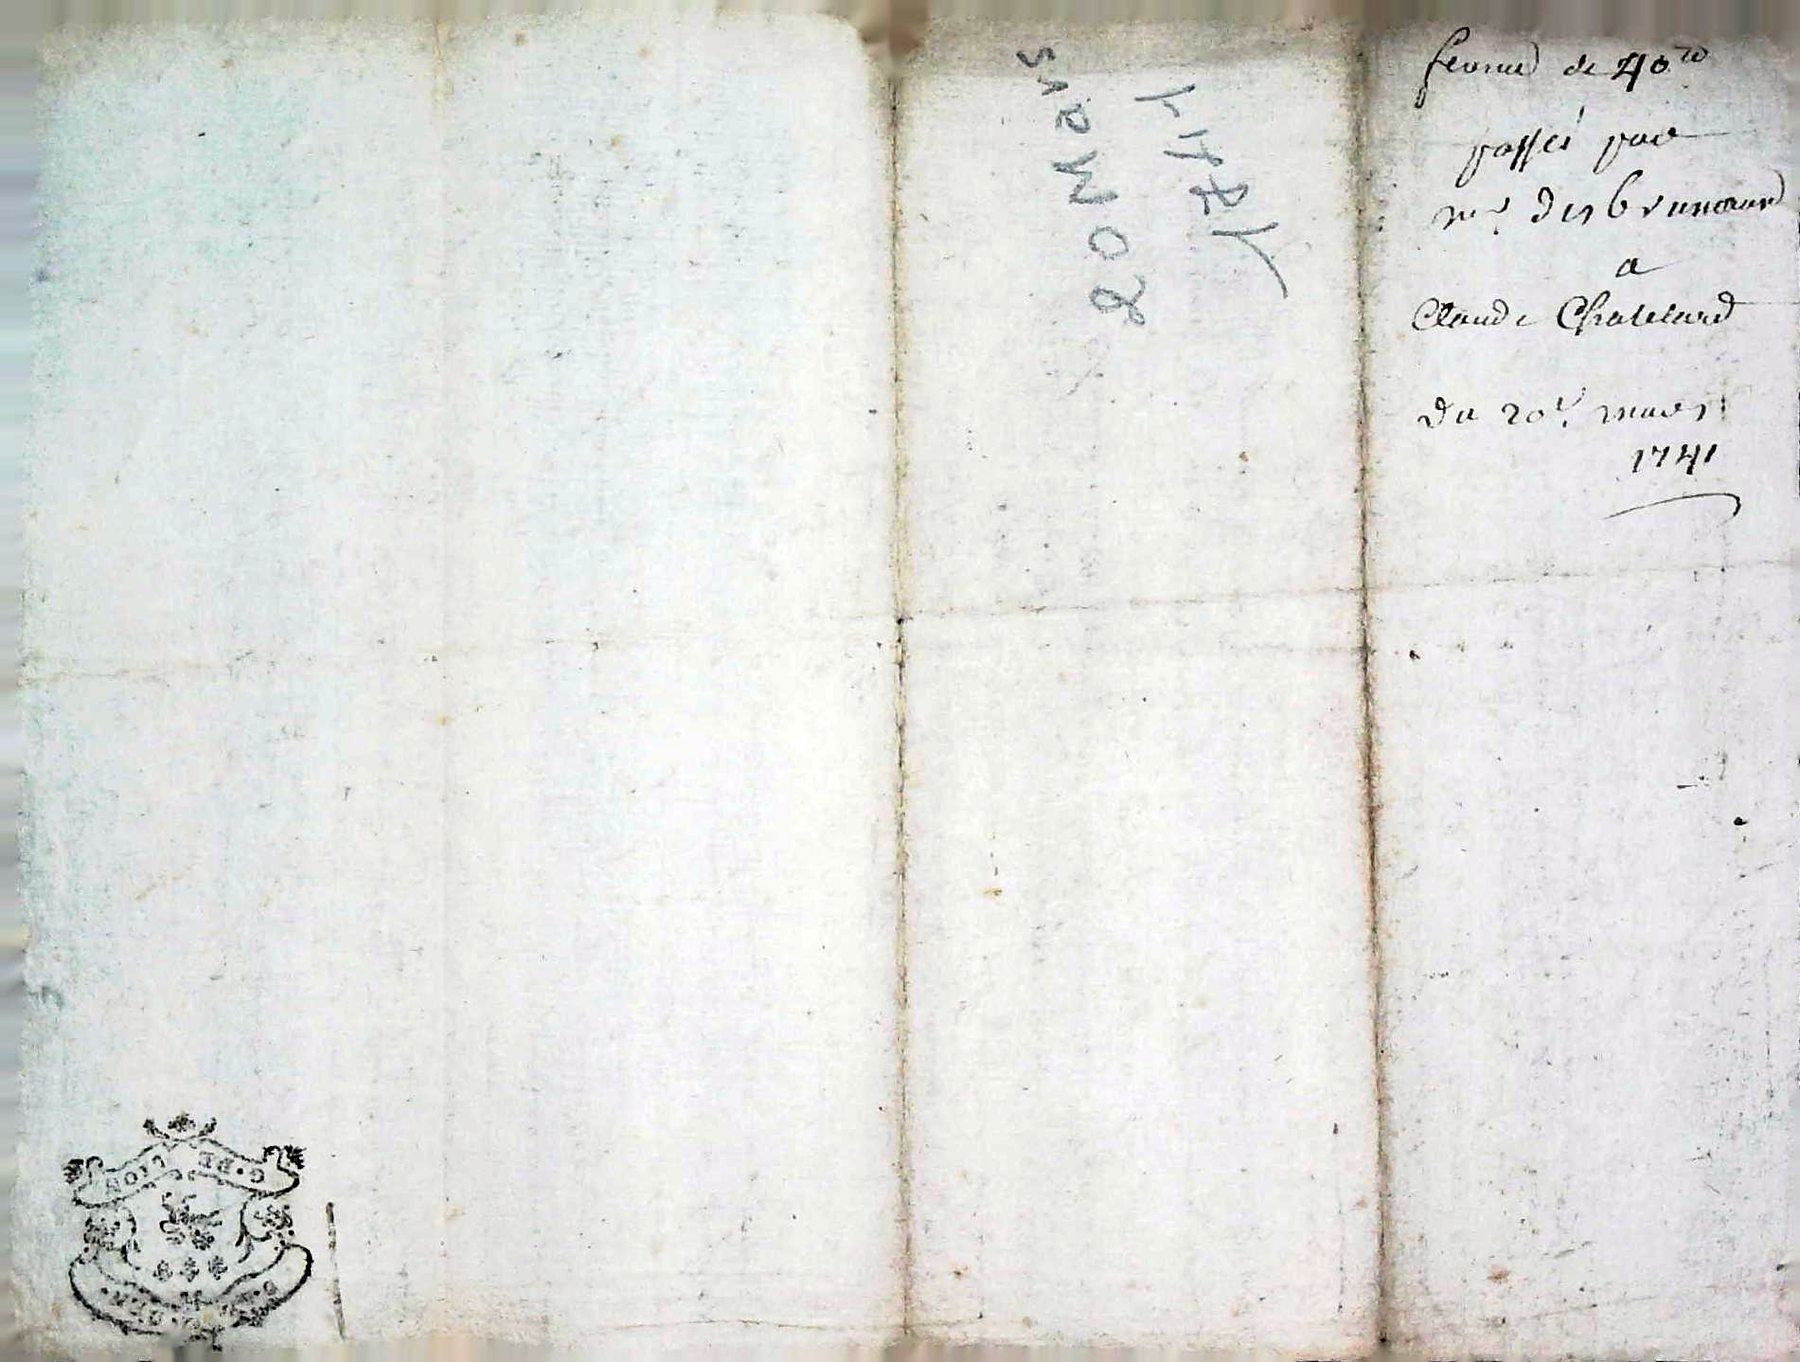 ferme de 40 ᵗᵗ
passé par
mʳ. Desbrunaud
a
Claude Chatelard
du 20ᵉ. mars
1741
20 Mars
1741
G. DE LION